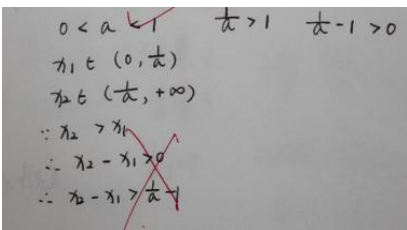 0 < a < 1 1/a > 1 1/a - 1 > 0
x₁ ∈ (0, 1/a)
x₂ ∈ (1/a, +∞)
∵ x₂ > x₁
∴ x₂ - x₁ > 0
∴ x₂ - x₁ > 1/a - 1